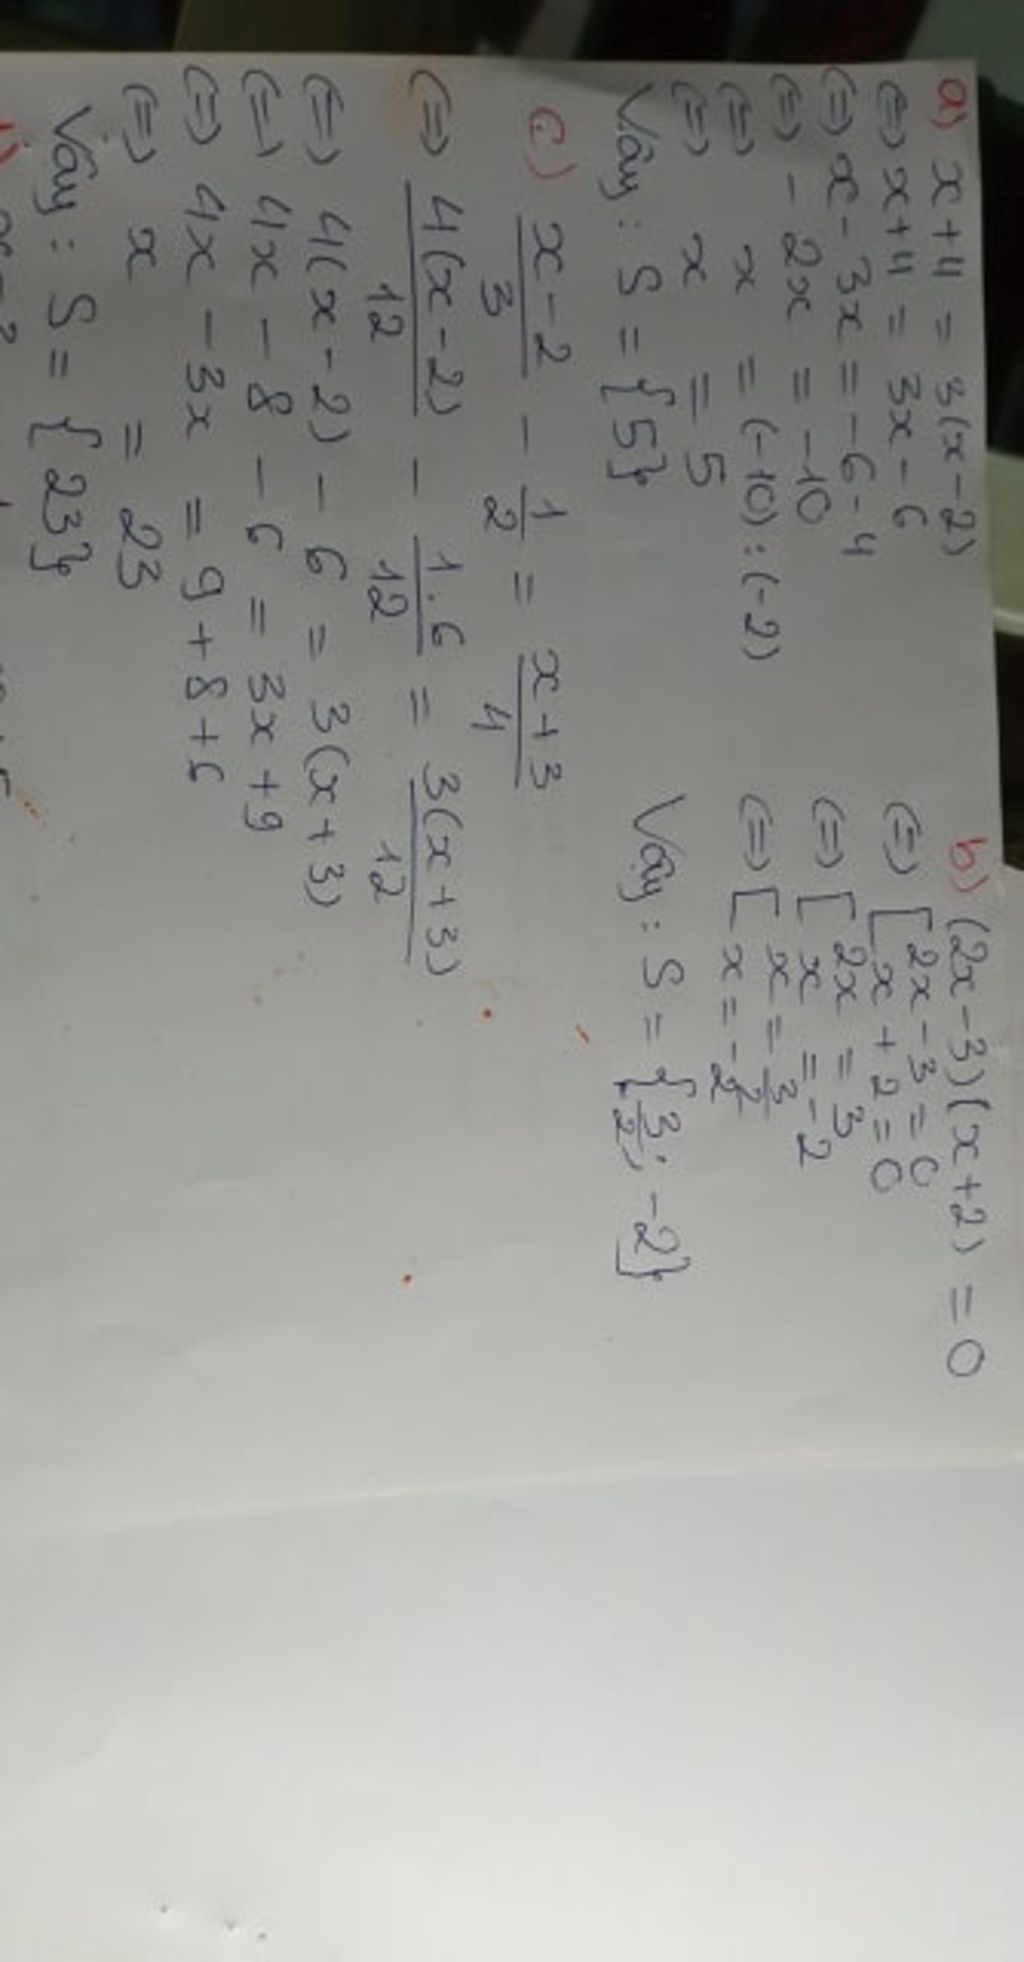 a) x+4 = 3(x-2)
(=) x+4 = 3x-6
(=) x-3x = -6-4
(=) -2x = -10
(=) x = (-10):(-2)
(=) x = 5
Vây: S = {5}
b) (2x-3)(x+2) = 0
(=) [2x-3=0
x+2=0
(=) [2x = 3
x = -2
(=) [x = 3/2
x = -2
Vây: S = {3/2; -2}
c) x-2/3 - 1/2 = x+3/4
(=) 4(x-2)/12 - 1.6/12 = 3(x+3)/12
(=) 4(x-2) - 6 = 3(x+3)
(=) 4x - 8 - 6 = 3x + 9
(=) 4x - 3x = 9+8+6
(=) x = 23
Vây: S = {23}